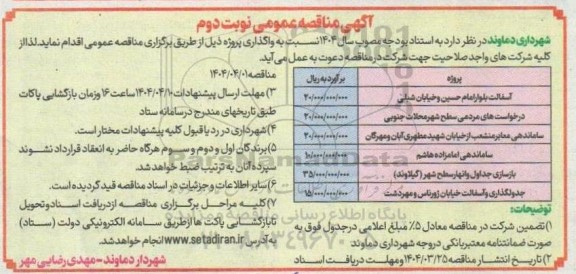 آگهی مناقصه عمومی نوبت دوم
شهرداری دماوند در نظر دارد به استناد بودجه مصوب سال ۱۴۰۴ نسبت به واگذاری پروژه ذیل از طریق برگزاری مناقصه عمومی اقدام نماید. لذا از
کلیه شرکت های واجد صلاحیت جهت شرکت در مناقصه دعوت به عمل می آید.
پروژه برآورد به ریال
آسفالت بلوار امام حسین و خیابان شبلی ۲۰/۰۰۰/۰۰۰/۰۰۰
درخواست های مردمی سطح شهر محلات جنوبی ۲۰/۰۰۰/۰۰۰/۰۰۰
ساماندهی معابر منشعب از خیابان شهید مطهری آبان و مهرگان ۲۰/۰۰۰/۰۰۰/۰۰۰
ساماندهی امامزاده هاشم
بازسازی جداول و انهار سطح شهر (گیلاوند) ۳۵/۰۰۰/۰۰۰/۰۰۰
جدولگذاری و آسفالت خیابان ژورناس و مهردشت ۱۵/۰۰۰/۰۰۰/۰۰۰
توضیحات:
۱) تضمین شرکت در مناقصه معادل ۵٪ مبلغ اعلامی در جدول فوق به
صورت ضمانتنامه معتبر بانکی در وجه شهرداری دماوند
۲) تاریخ انتشار مناقصه ۱۴۰۴/۰۳/۲۵ و مهلت دریافت اسناد
مناقصه ۱۴۰۴/۰۴/۰۱
۳) مهلت ارسال پیشنهادات ۱۴۰۴/۰۴/۱۰ ساعت ۱۶ و زمان بازگشایی پاکات
طبق تاریخهای مندرج در سامانه ستاد
۴) شهرداری در رد یا قبول کلیه پیشنهادات مختار است.
۵) برندگان اول و دوم و سوم هرگاه حاضر به انعقاد قرارداد نشوند
سپرده آنان به ترتیب ضبط خواهد شد.
۶) سایر اطلاعات و جزئیات در اسناد مناقصه قید گردیده است.
۷) کلیه مراحل برگزاری مناقصه از دریافت اسناد و تحویل
تا بازگشایی پاکت ها از طریق سامانه الکترونیکی دولت (ستاد)
به آدرس: www.setadiran.ir انجام خواهد شد.
شهردار دماوند - مهدی رضایی مهر